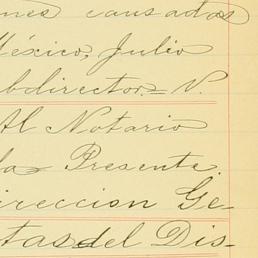 nes causados
México, Julio
bdirector.=N.
Al Notario
la Presente
ireccion Ge-
tas del Dis-